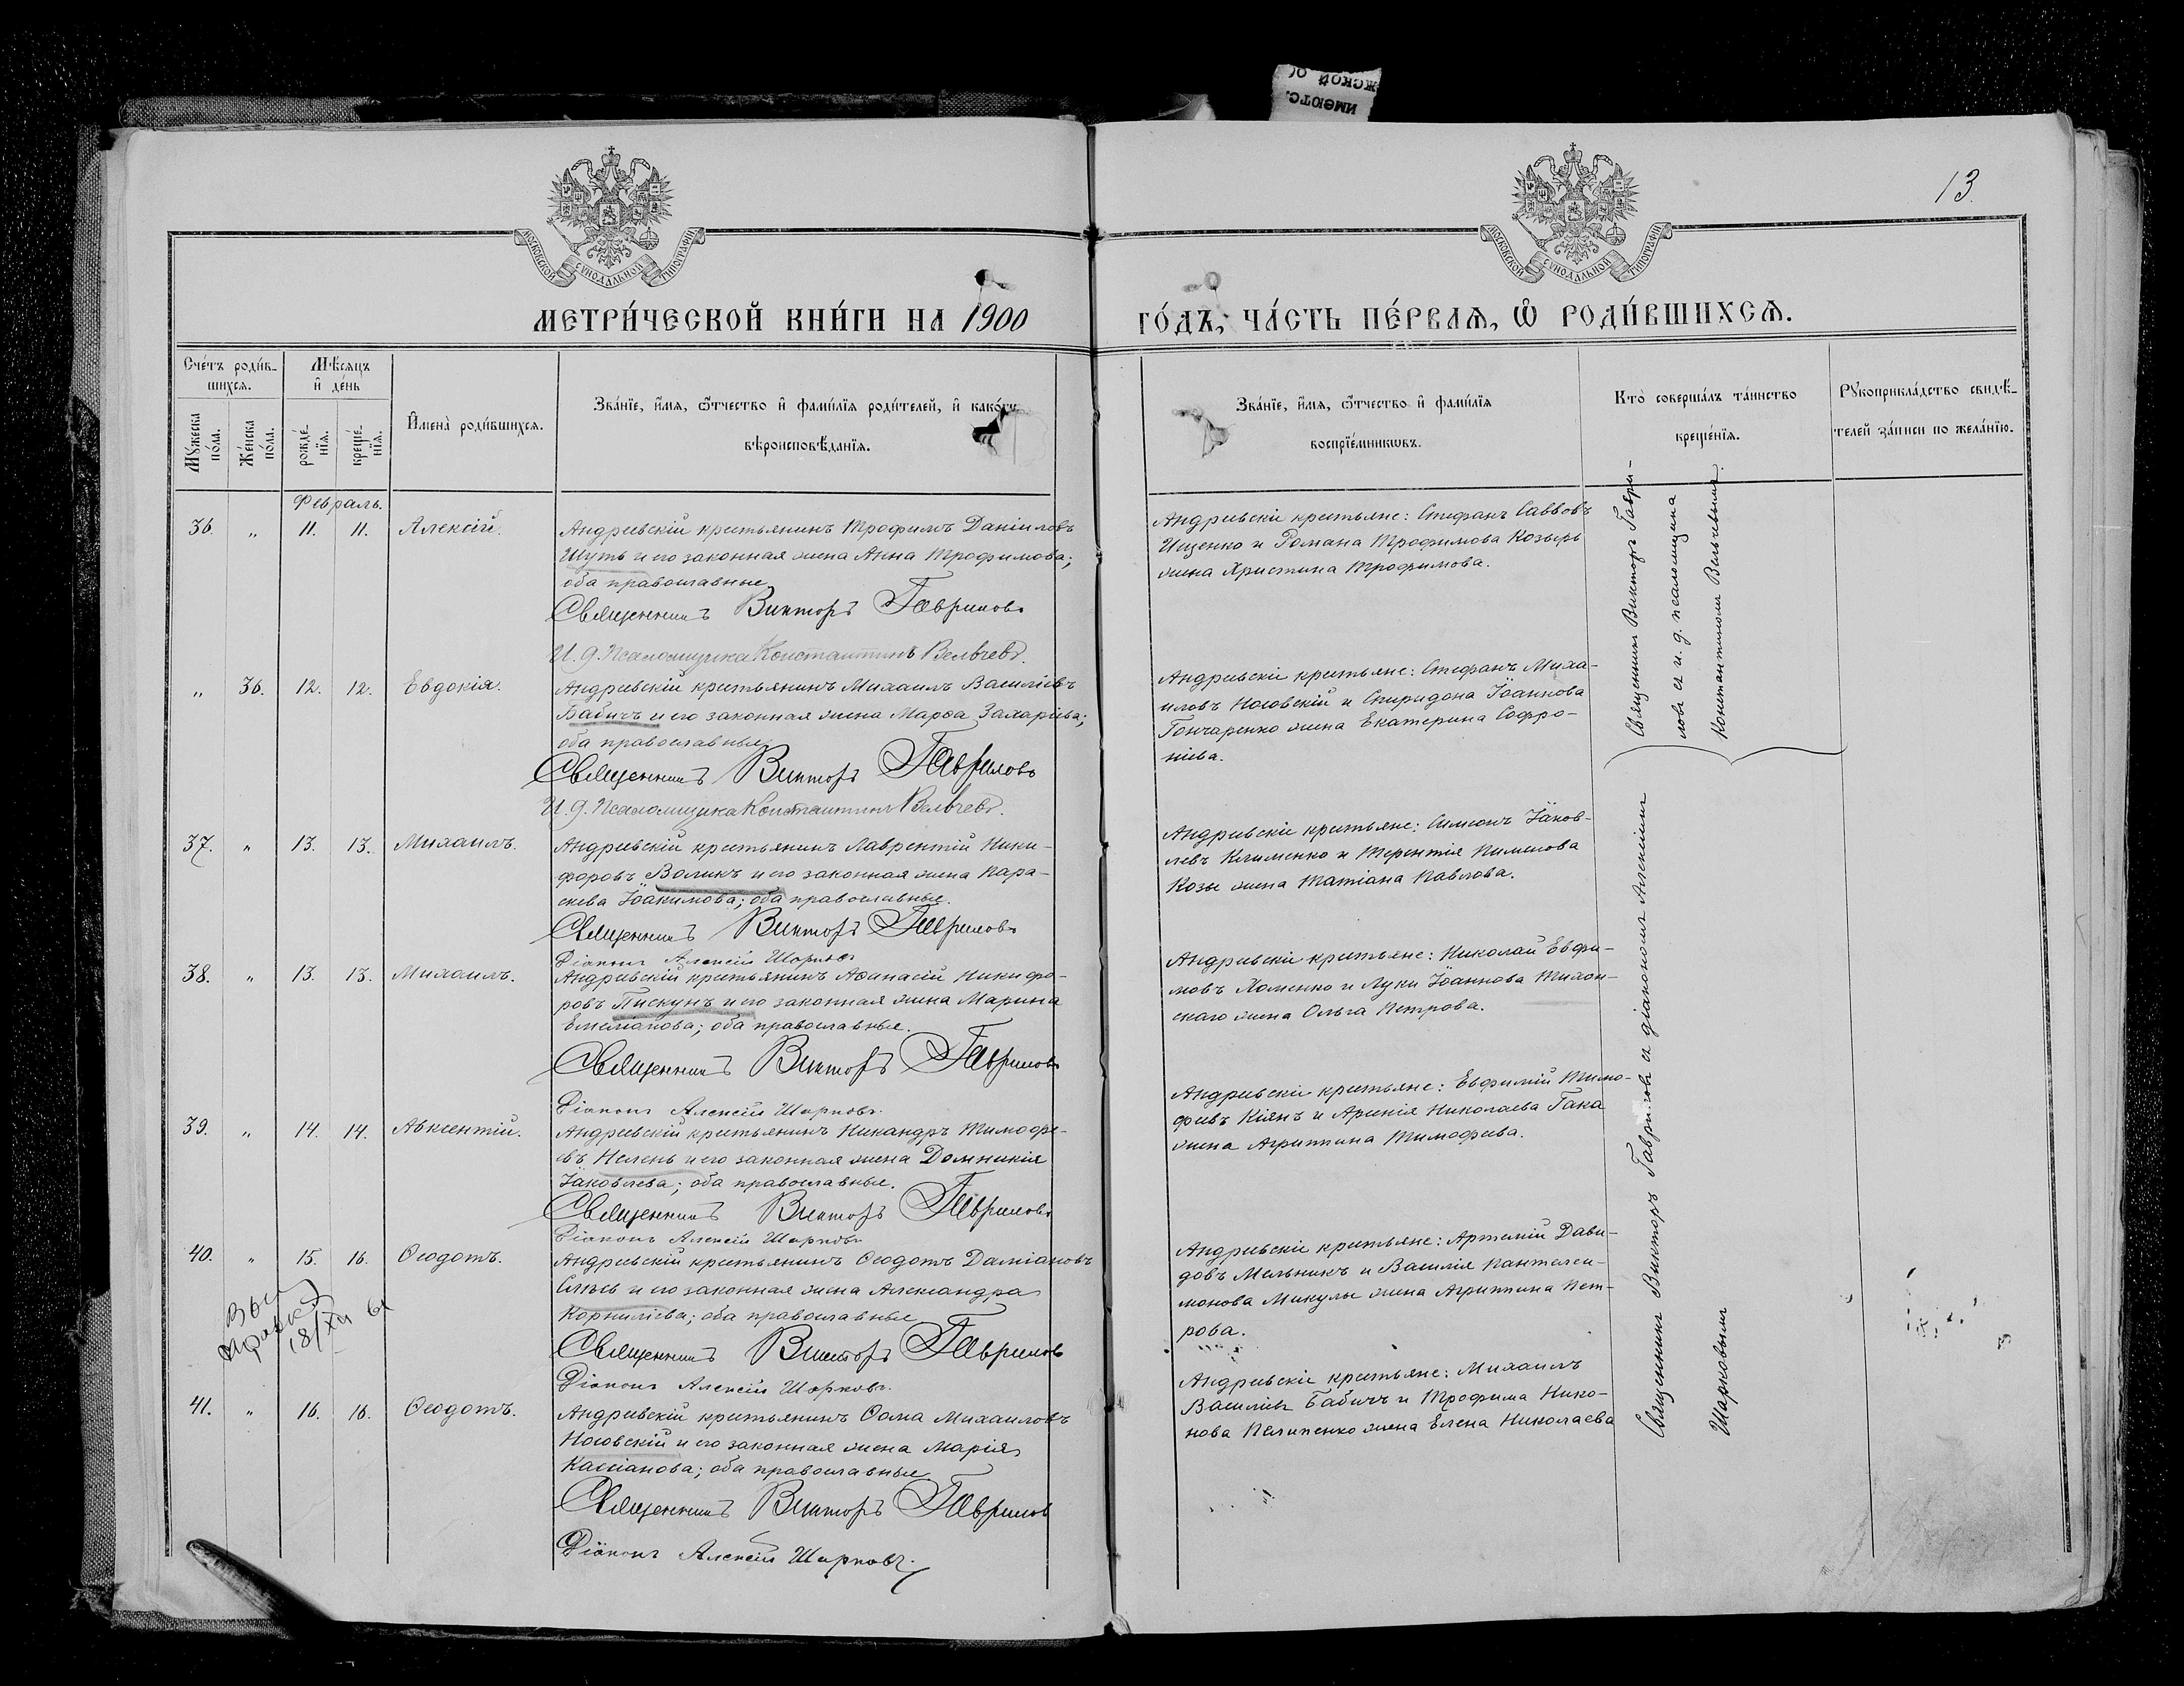 ИМЕЮТС.
ЖСКОЙ О
13.
МОСКОВСКОЙ СѴНОДАЛЬНОЙ ТИПОГРАФІИ
МОСКОВСКОЙ СѴНОДАЛЬНОЙ ТИПОГРАФІИ
МЕТРИ́ЧЕСКОЙ КНИ́ГИ НА 1900
ГО́ДЪ, ЧА́СТЬ ПЕ́РВАѦ, Ѽ РОДИ́ВШИХСѦ.
Сче́тъ роди́в-
шихсѧ.
Мѣ́сѧцъ
и҆ де́нь
Мꙋ́жеска
по́ла.
Же́нска
по́ла.
рожде́-
нїѧ.
креще́-
нїѧ.
И҆мена̀ роди́вшихсѧ.
Зва́нїе, и҆́мѧ, ѻ҆́тчество и҆ фами́лїѧ роди́телей, и҆ како́гѡ
вѣроисповѣ́данїѧ.
Зва́нїе, и҆́мѧ, ѻ҆́тчество и҆ фами́лїѧ
воспрїе́мникѡвъ.
Кто̀ соверша́лъ та́инство
креще́нїѧ.
Рꙋкоприкла́дство свидѣ́-
телей за́писи по жела́нїю.
Февраль.
36. „ 11. 11. Алексій.
Андреевскій крестьянинъ Трофимъ Даніиловъ
Шуть и его законная жена Анна Трофимова;
оба православные
Священникъ Викторъ Гавриловъ
И. д. Псаломщика Константинъ Вельчевъ.
Андреевскіе крестьяне: Стефанъ Саввовъ
Ищенко и Романа Трофимова Козырь
жена Христина Трофимова.
„ 36. 12. 12. Евдокія.
Андреевскій крестьянинъ Михаилъ Василіевъ
Бабичъ и его законная жена Марѳа Захаріева;
оба православные
Священникъ Викторъ Гавриловъ
И. д. Псаломщика Константинъ Вельчевъ.
Андреевскіе крестьяне: Стефанъ Миха-
иловъ Носовскій и Спиридона Іоаннова
Гончаренко жена Екатерина Софро-
ніева.
Священникъ Викторъ Гаври-
ловъ съ и. д. псаломщика
Константиномъ Вельчевымъ.
37. „ 13. 13. Михаилъ.
Андреевскій крестьянинъ Лаврентій Ники-
форовъ Воликъ и его законная жена Пара-
скева Іоакимова; оба православные.
Священникъ Викторъ Гавриловъ
Діаконъ Алексій Шарковъ
Андреевскіе крестьяне: Симеонъ Іаков-
левъ Клименко и Терентія Пименова
Козы жена Татіана Павлова.
38. „ 13. 13. Михаилъ.
Андреевскій крестьянинъ Аѳанасій Никифо-
ровъ Пискунъ и его законная жена Марина
Емеліанова; оба православные.
Священникъ Викторъ Гавриловъ
Діаконъ Алексій Шарковъ.
Андреевскіе крестьяне: Николай Евфи-
мовъ Хоменко и Луки Іоаннова Тихон-
скаго жена Ольга Петрова.
39. „ 14. 14. Авксентій.
Андреевскій крестьянинъ Никандръ Тимофе-
евъ Нелень и его законная жена Домникія
Іаковлева; оба православные.
Священникъ Викторъ Гавриловъ
Діаконъ Алексій Шарковъ
Андреевскіе крестьяне: Евфимій Тимо-
феевъ Кіянъ и Арсенія Николаева Гака
жена Агриппина Тимофеева.
40. „ 15. 16. Ѳеодотъ.
Андреевскій крестьянинъ Ѳеодотъ Даміановъ
и его законная жена Александра
Корниліева; оба православные
Священникъ Викторъ Гавриловъ
Діаконъ Алексій Шарковъ.
18/XII 61
Андреевскіе крестьяне: Артемій Дави-
довъ Мельникъ и Василія Пантелеи-
монова Микулы жена Агриппина Пет-
рова.
41. „ 16. 16. Ѳеодотъ.
Андреевскій крестьянинъ Ѳома Михаиловъ
Носовскій и его законная жена Марія
Кассіанова; оба православные
Священникъ Викторъ Гавриловъ
Діаконъ Алексій Шарковъ.
Андреевскіе крестьяне: Михаилъ
Василіевъ Бабичъ и Трофима Нико-
нова Пилипенко жена Елена Николаева
Священникъ Викторъ Гавриловъ съ діакономъ Алексіемъ
Шарковымъ